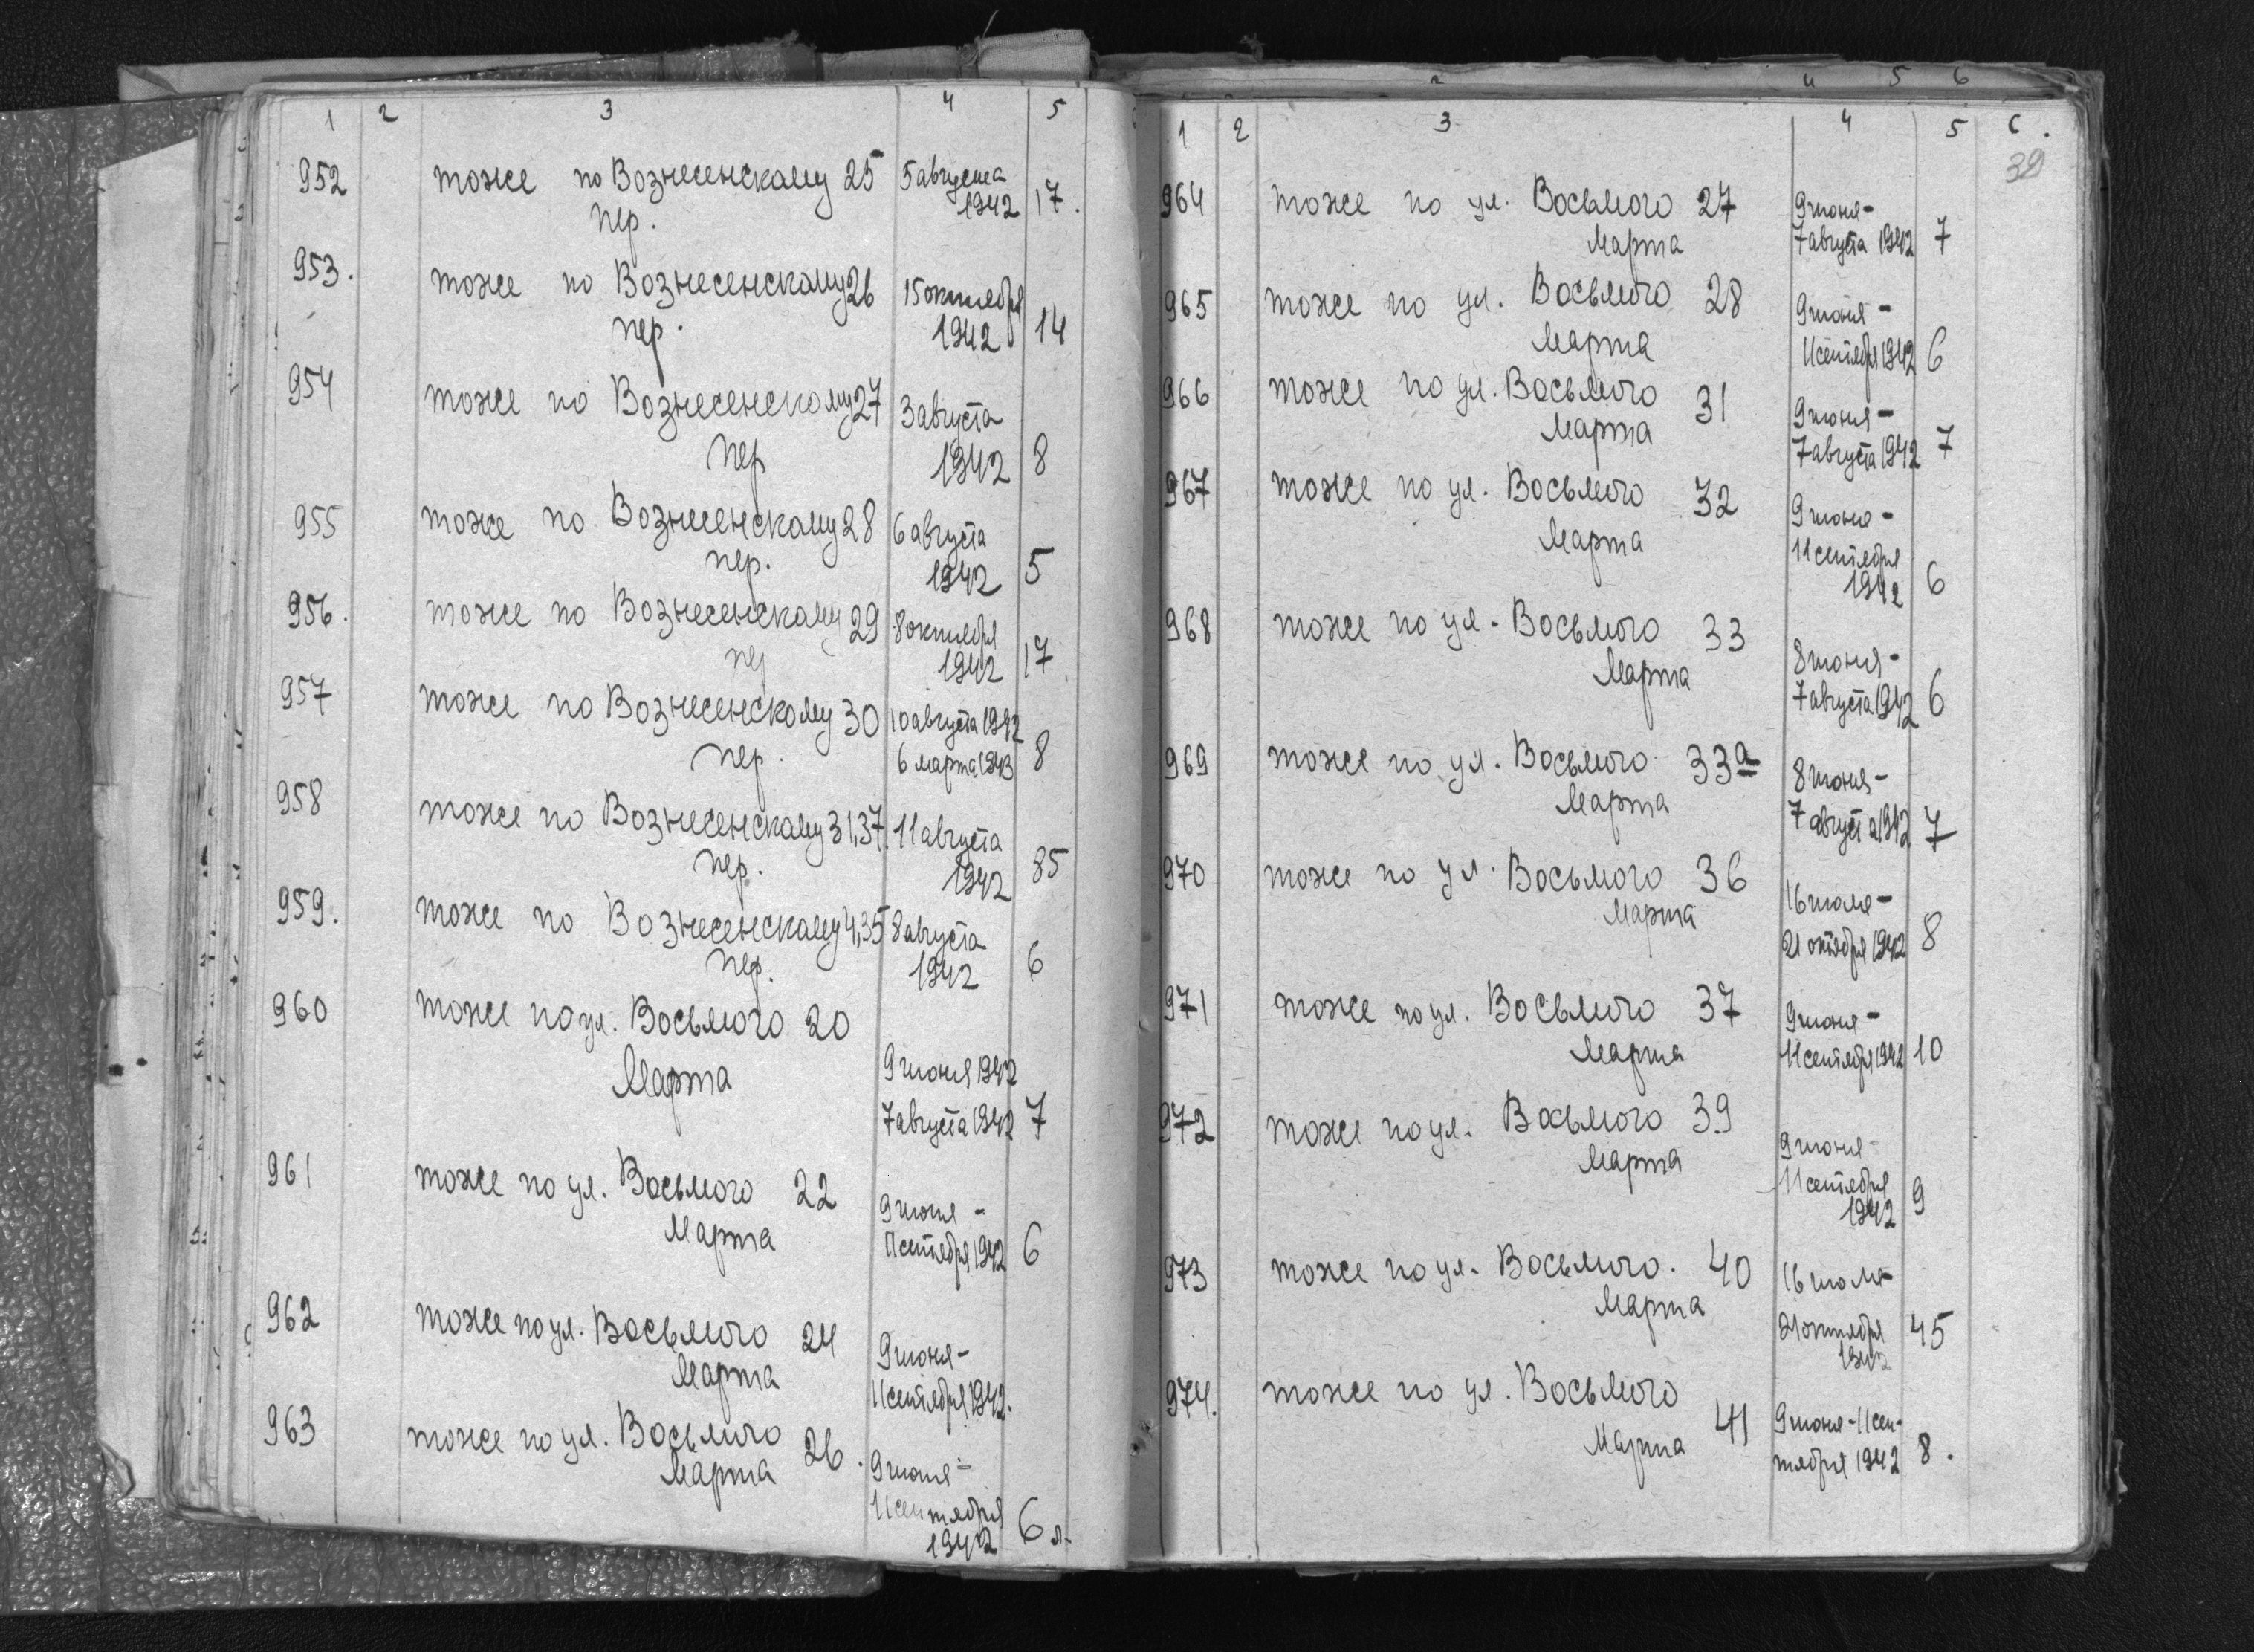 1 2 3 4 5
952 тоже по Вознесенскому 25 5 августа
пер. 1942 17.
953. тоже по Вознесенскому 26 15 октября
пер. 1942 14
954 тоже по Вознесенскому 27 3 августа
пер 1942 8
955 тоже по Вознесенскому 28 6 августа
пер. 1942 5
956. тоже по Вознесенскому 29 8 октября
пер 1942 17
957 тоже по Вознесенскому 30 10 августа 1942
пер. 6 марта 1943 8
958 тоже по Вознесенскому 31,37. 11 августа
пер. 1942 85
959. тоже по Вознесенскому 4,35 8 августа
пер. 1942 6
960 тоже по ул. Восьмого 20
Марта 9 июня 1942
7 августа 1942 7
961 тоже по ул. Восьмого 22
Марта 9 июня -
11 сентября 1942 6
962 тоже по ул. Восьмого 24
Марта 9 июня -
11 сентября 1942.
963 тоже по ул. Восьмого 26.
Марта 9 июня -
11 сентября
1942 6 л.
2 4 5 6
1 2 3 4 5 6.
39
964 тоже по ул. Восьмого 27 9 июня -
Марта 7 августа 1942 7
965 тоже по ул. Восьмого 28 9 июня -
Марта 11 сентября 1942 6
966 тоже по ул. Восьмого 31 9 июня -
Марта 7 августа 1942 7
967 тоже по ул. Восьмого 32 9 июня -
Марта 11 сентября
1942 6
968 тоже по ул. Восьмого 33 8 июня -
Марта 7 августа 1942 6
969 тоже по ул. Восьмого 33а 8 июня -
Марта 7 августа 1942 7
970 тоже по ул. Восьмого 36 16 июля -
Марта 21 октября 1942 8
971 тоже по ул. Восьмого 37 9 июня -
Марта 11 сентября 1942 10
972 тоже по ул. Восьмого 39 9 июня -
Марта 11 сентября
1942 9
973 тоже по ул. Восьмого. 40 16 июля -
Марта 21 октября 45
1942
974. тоже по ул. Восьмого
Марта 41 9 июня - 11 сен-
тября 1942 8.